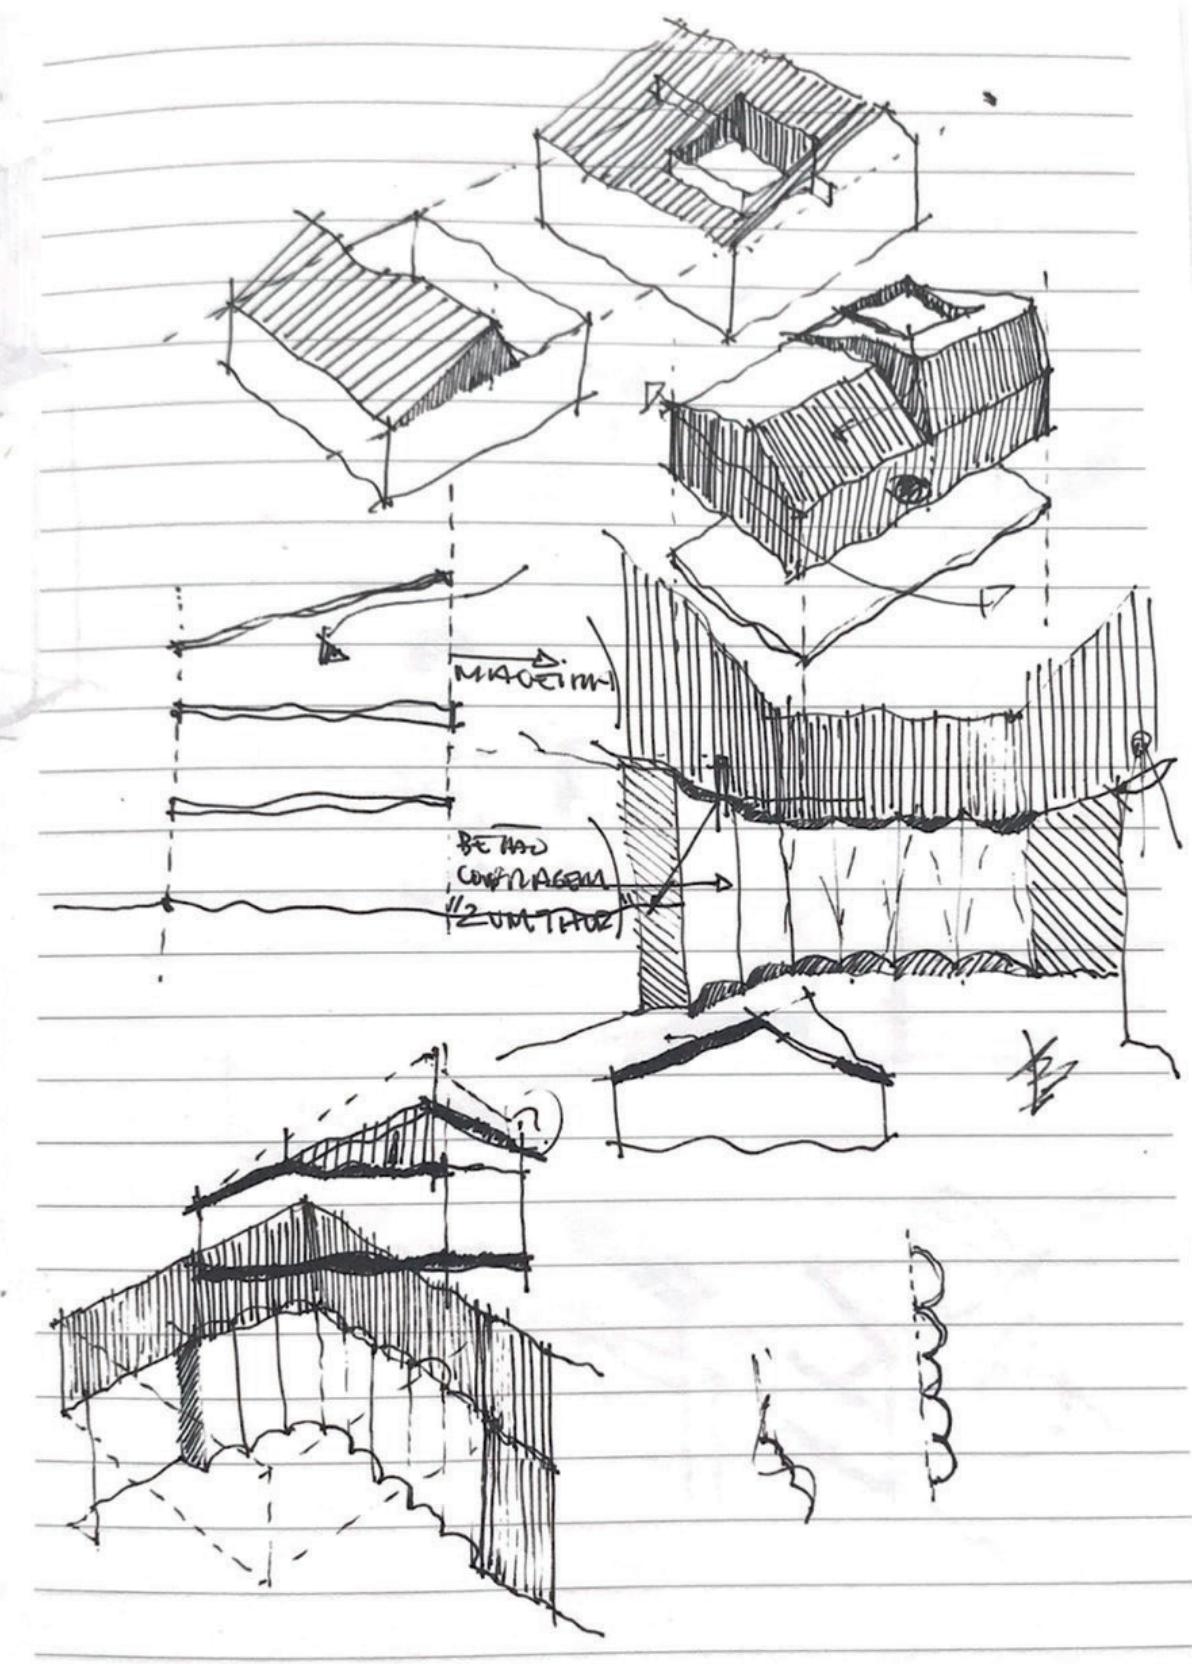 MADEIRA
BETÃO
COFRAGEM
"ZUMTHOR"